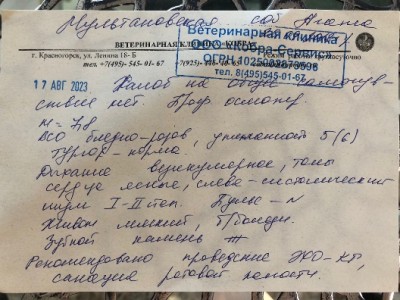 Мультановская соб Агата
ВЕТЕРИНАРНАЯ КЛИНИКА
г. Красногорск, ул. Ленина 18-Б круглосуточно
тел. +7(495)- 545- 01- 67 +7(925)-
Ветеринарная клиника
ООО "Кобра-Сервис"
ОГРН
тел. 8(495)545-01-67
17 АВГ 2023 Жалоб на общее самочув-
ствие нет. Проф осмотр.
m = 7,8
ВСО бледно-розов, упитанность 5(6)
Тургор - норма,
Дыхание везикулярное, тоны
сердце ясные, слева - систолический
шум I-II степ. Пульс - N
Живот мягкий, б/болезн.
Зубной камень
Рекомендовано проведение ЭХО-КГ,
санация ротовой полости.